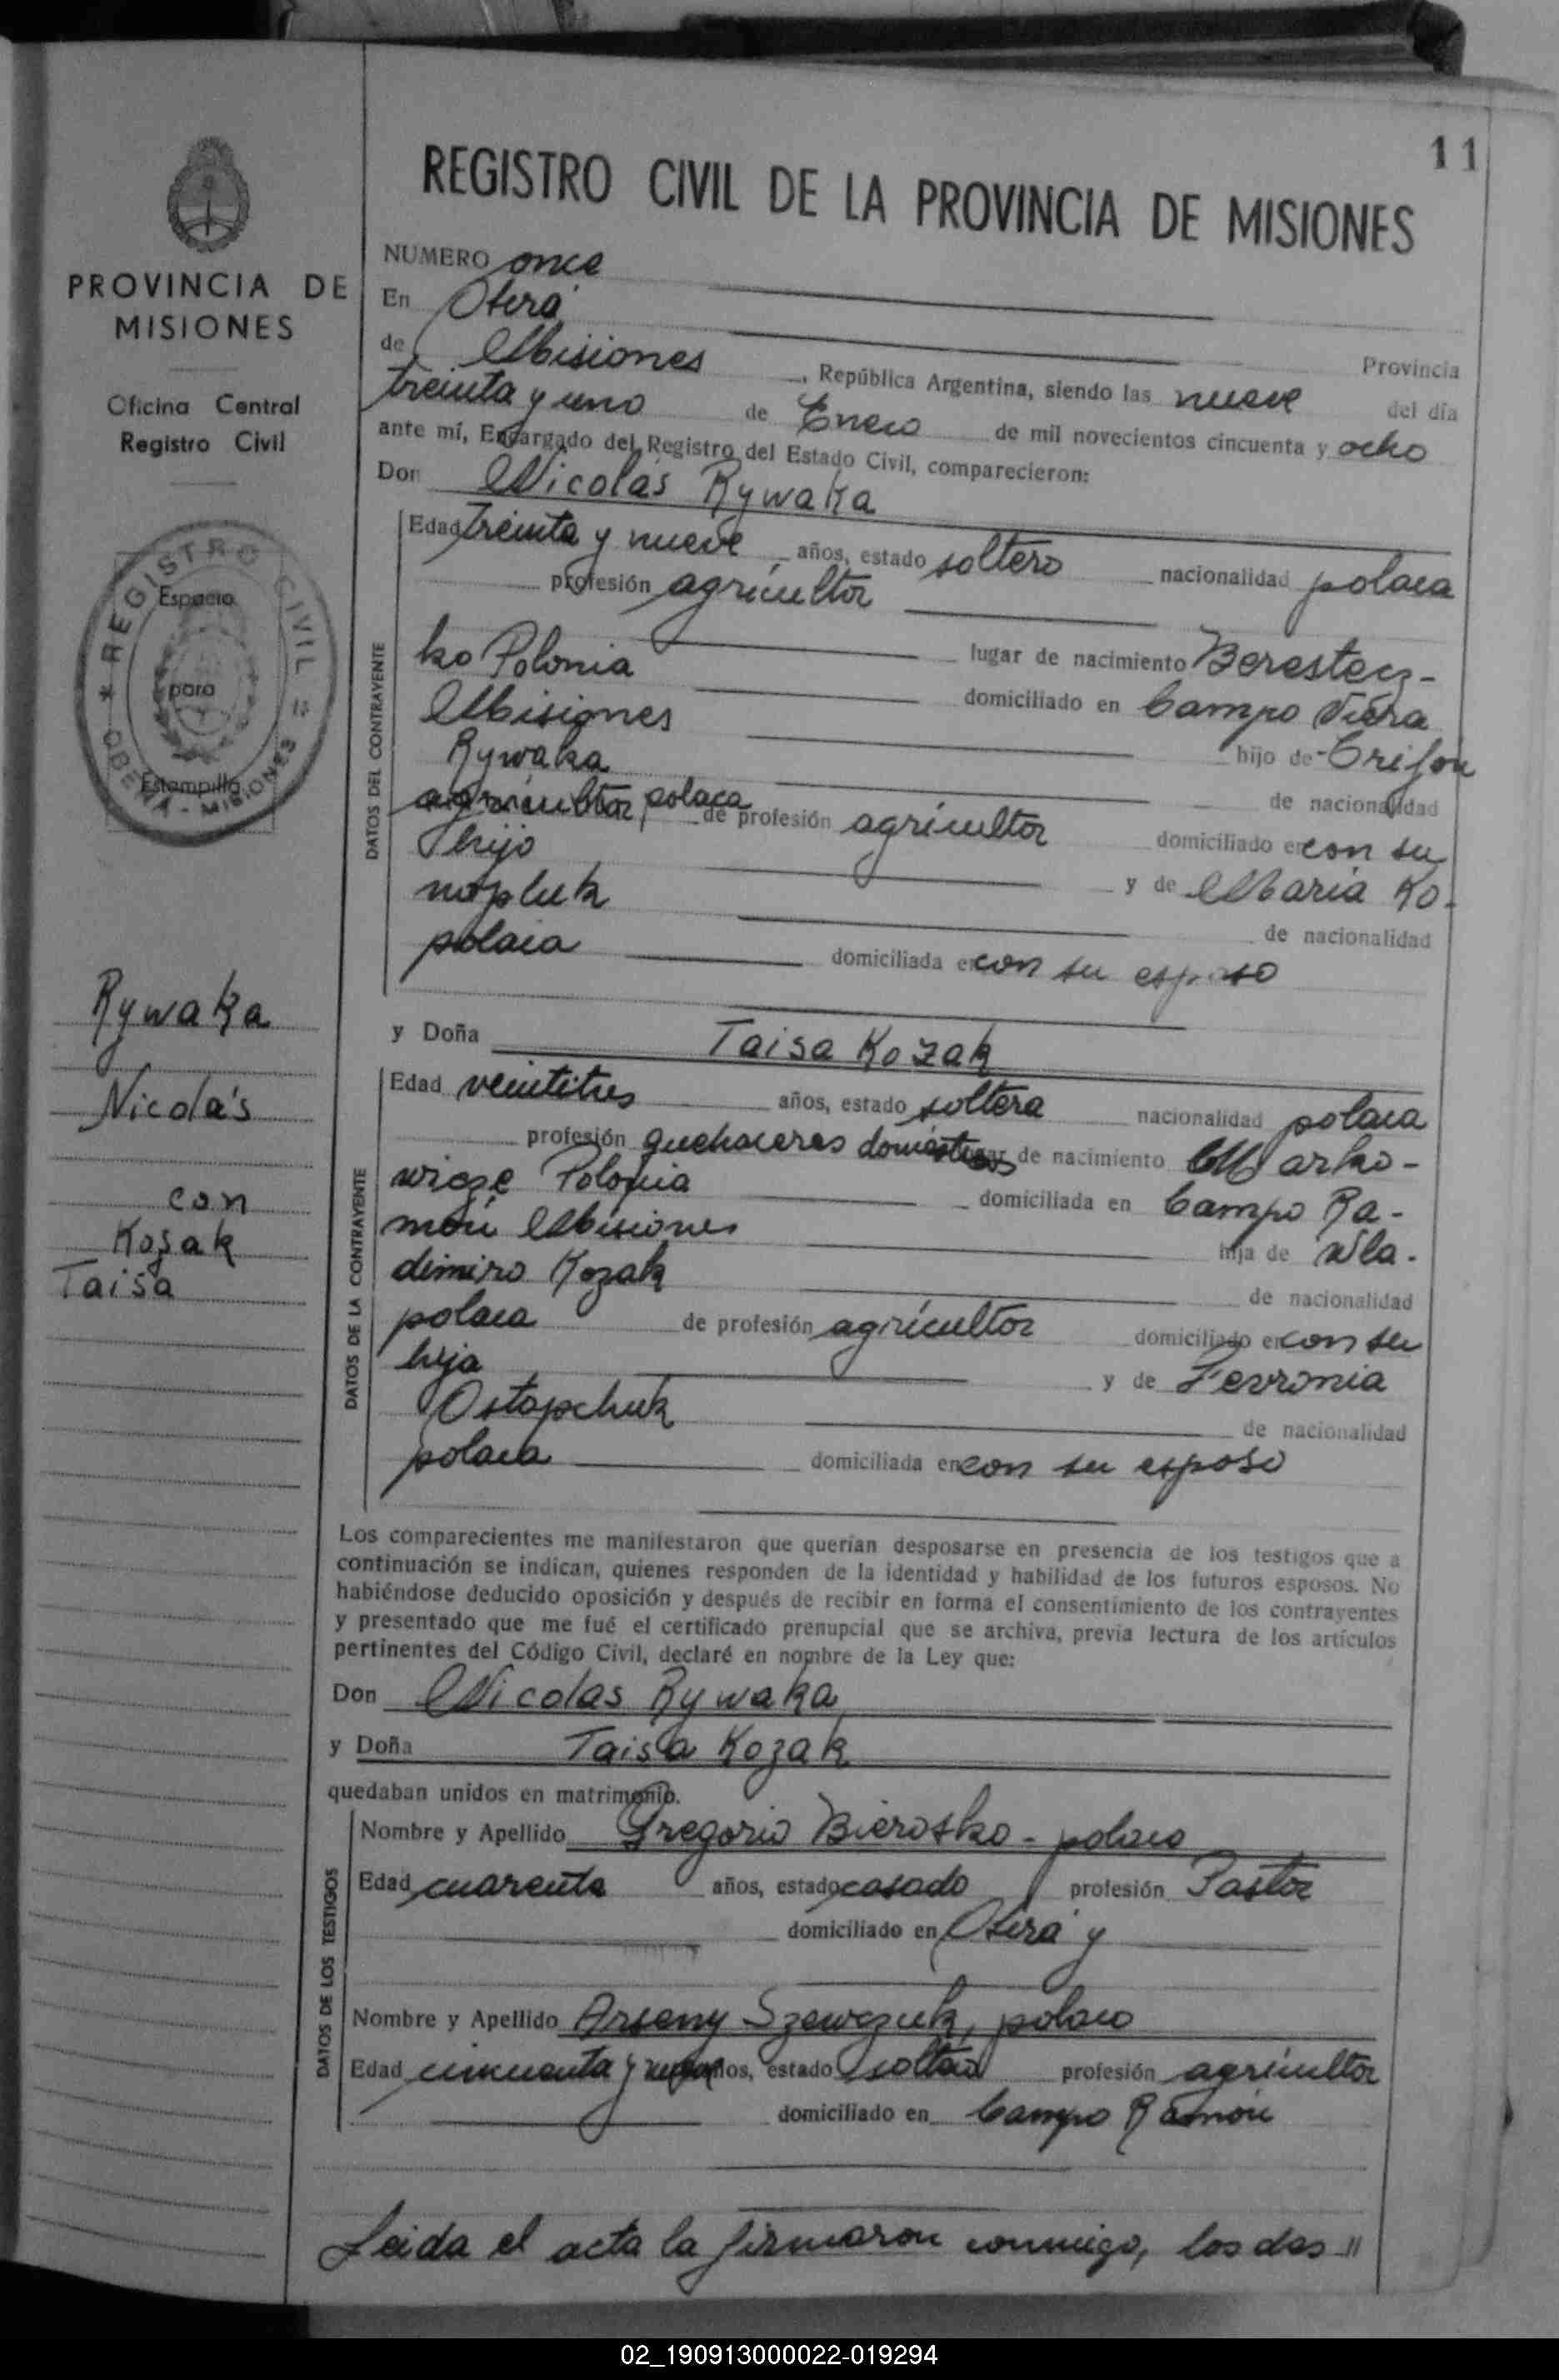 11
REGISTRO CIVIL DE LA PROVINCIA DE MISIONES
PROVINCIA DE
MISIONES
Oficina Central
Registro Civil
REGISTRO CIVIL
Espacio
para
Estampilla
OBERA - MISIONES
Rywaka
Nicolás
con
Kozak
Taisa
NUMERO once
En Oberá
Provincia
de Misiones, República Argentina, siendo las nueve del día
treinta y uno de Enero de mil novecientos cincuenta y ocho
ante mí, Encargado del Registro del Estado Civil, comparecieron:
Don Nicolás Rywaka
DATOS DEL CONTRAYENTE
Edad treinta y nueve años, estado soltero nacionalidad polaca
profesión agricultor
lugar de nacimiento Berestecz-
ko Polonia domiciliado en Campo Viera
Misiones hijo de Grifón
Rywaka de nacionalidad
agricultor, polaca de profesión agricultor domiciliado en con su
hijo y de María Ko-
nopluk de nacionalidad
polaca domiciliada en con su esposo
y Doña Taisa Kozak
DATOS DE LA CONTRAYENTE
Edad veintitres años, estado soltera nacionalidad polaca
profesión quehaceres domésticos lugar de nacimiento Marko-
wicze Polonia domiciliada en Campo Ra-
món Misiones hija de Wla-
dimiro Kozak de nacionalidad
polaca de profesión agricultor domiciliado en con su
hija y de Fevronia
Ostapchuk de nacionalidad
polaca domiciliada en con su esposo
Los comparecientes me manifestaron que querían desposarse en presencia de los testigos que a
continuación se indican, quienes responden de la identidad y habilidad de los futuros esposos. No
habiéndose deducido oposición y después de recibir en forma el consentimiento de los contrayentes
y presentado que me fué el certificado prenupcial que se archiva, previa lectura de los artículos
pertinentes del Código Civil, declaré en nombre de la Ley que:
Don Nicolas Rywaka
y Doña Taisa Kozak
quedaban unidos en matrimonio.
DATOS DE LOS TESTIGOS
Nombre y Apellido Gregorio Bierosko - polaco
Edad cuarenta años, estado casado profesión Pastor
domiciliado en Oberá y
Nombre y Apellido Arseny Szewczuk, polaco
Edad cincuenta y años, estado soltero profesión agricultor
domiciliado en Campo Ramón
Leida el acta la firmaron conmigo, los dos //
02_190913000022-019294